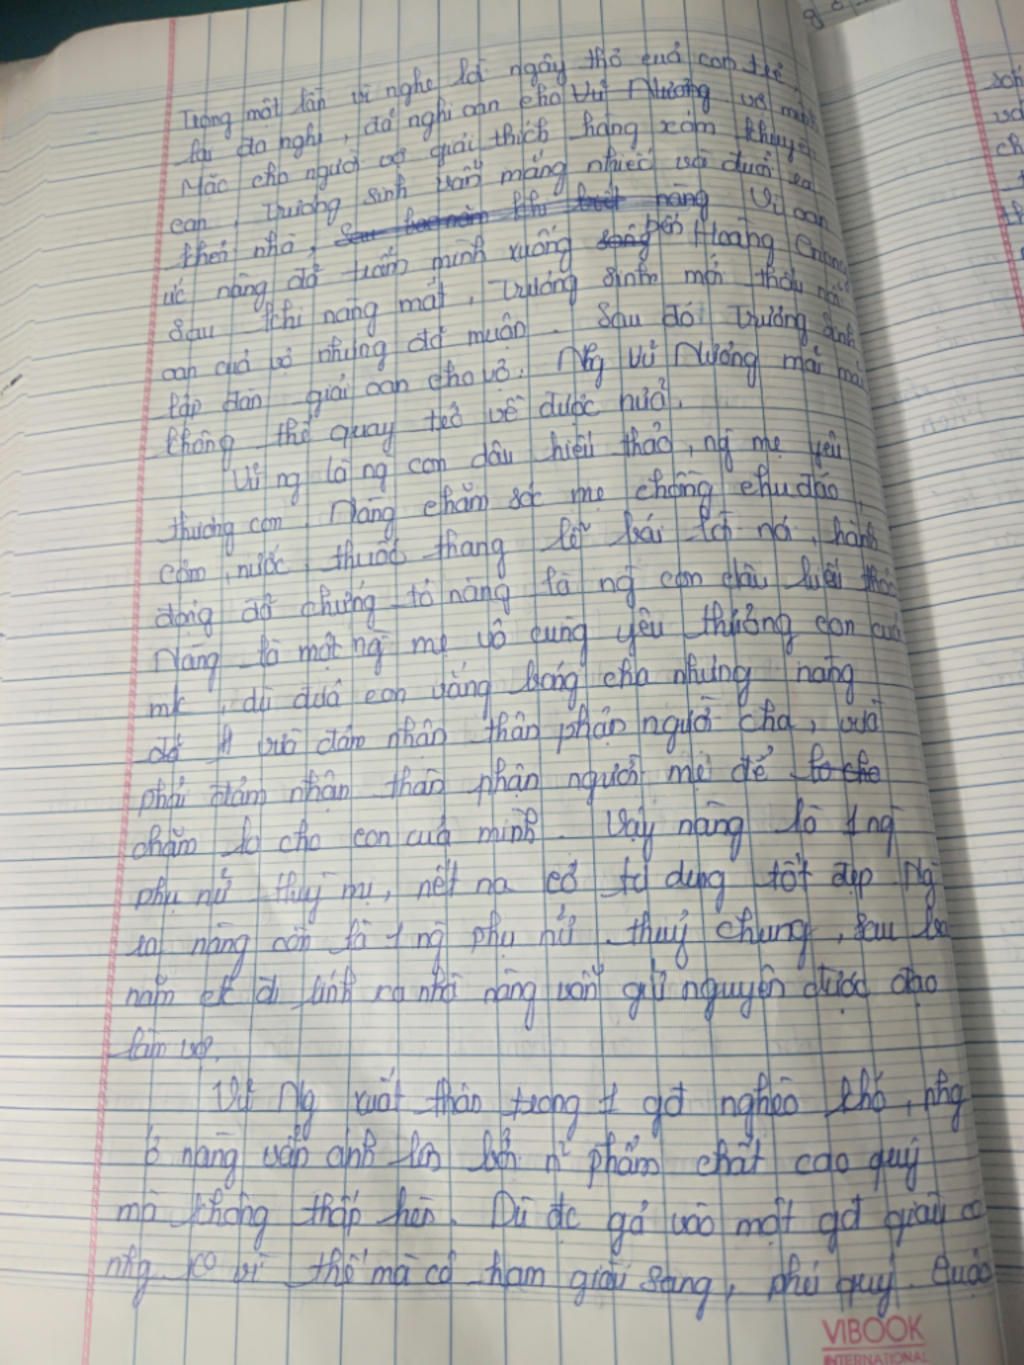 Trong một lần vì nghe lời ngây thơ của con trẻ,
lại đa nghi, đã nghi oan cho Vũ Nương và mình
Mặc cho người vợ giải thích hàng xóm khuyên
can, Trương Sinh vẫn mắng nhiếc và đuổi ra
khỏi nhà, nàng Vì oan
ức nàng đã trẫm mình xuống bến Hoàng Giang
Sau khi nàng mất, Trương Sinh mới thấu nỗi
oan của vợ nhưng đã muộn. Sau đó Trương Sinh
lập đàn giải oan cho vợ. Nhg Vũ Nương mãi mãi
không thể quay trở về được nữa.
Vũ ng là ng con dâu hiếu thảo, ng mẹ yêu
thương con. Nàng chăm sóc mẹ chồng chu đáo,
cơm, nước, thuốc thang lễ bái tới nó, hành
động đã chứng tỏ nàng là ng con dâu hiếu thảo
Nàng là một ng mẹ vô cùng yêu thương con của
mk, dù đứa con vắng bóng cha nhưng nàng
đã vừa đảm nhận thân phận người cha, vừa
phải đảm nhận thân phận người mẹ để lo cho
chăm lo cho con của mình. Vậy nàng là 1 ng
phụ nữ thuỳ mị, nết na có tư dung tốt đẹp Ng
ra nàng còn là 1 ng phụ nữ thuỷ chung, sau ba
năm ck đi lính ra nhà nàng vẫn giữ nguyên được đạo
làm vợ.
Vũ Ng xuất thân trong 1 gđ nghèo khó, nhg
ở nàng vẫn ánh lên bởi n~ phẩm chất cao quý
mà không thấp hèn. Dù đc gả vào một gđ giàu có
nhg ko vì thế mà cô ham giàu sang, phú quý. Cuộc
VIBOOK
INTERNATIONAL